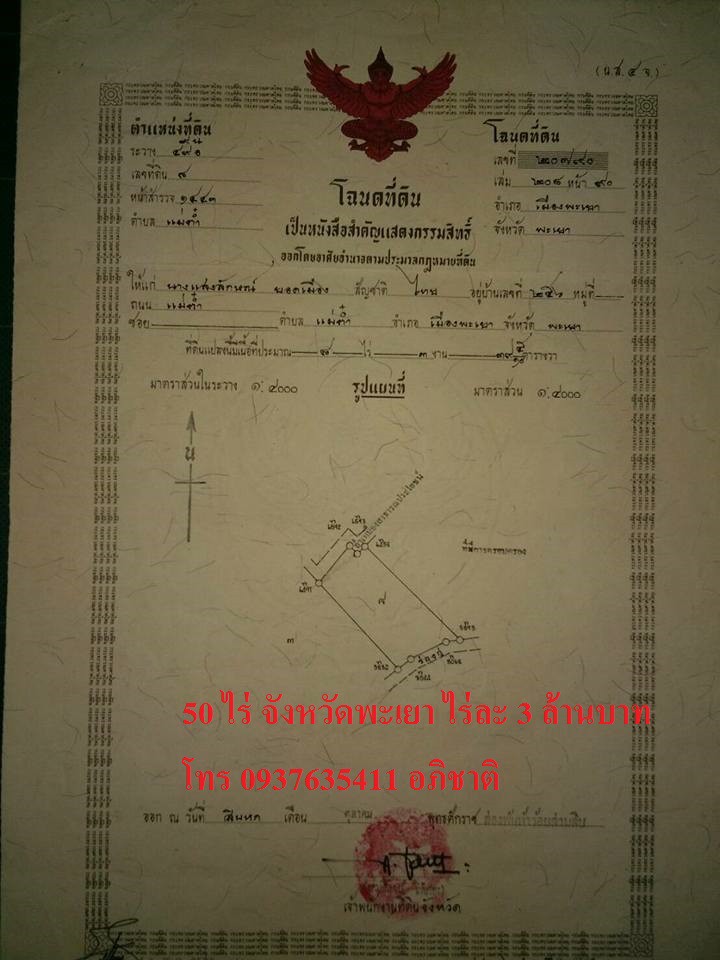 (น.ส. ๔ จ.)
ตำแหน่งที่ดิน
ระวาง
เลขที่ดิน ๗
หน้าสำรวจ ๑๔๔๓
ตำบล แม่ต๋ำ
โฉนดที่ดิน
เลขที่ ๒๐๗๙๐
เล่ม ๒๐๘ หน้า ๙๐
อำเภอ เมืองพะเยา
จังหวัด พะเยา
โฉนดที่ดิน
เป็นหนังสือสำคัญแสดงกรรมสิทธิ์
ออกโดยอาศัยอำนาจตามประมวลกฎหมายที่ดิน
ให้แก่ นางแสงลักษณ์ ยอดเมือง สัญชาติ ไทย อยู่บ้านเลขที่ ๒๕๖ หมู่ที่
ถนน แม่ต๋ำ
ซอย ตำบล แม่ต๋ำ อำเภอ เมืองพะเยา จังหวัด พะเยา
ที่ดินแปลงนี้มีเนื้อที่ประมาณ ไร่ ๓ งาน ตารางวา
มาตราส่วนในระวาง ๑:๔๐๐๐ รูปแผนที่ มาตราส่วน ๑:๔๐๐๐
น
ที่มีการครอบครอง
๗
๓
50 ไร่ จังหวัดพะเยา ไร่ละ 3 ล้านบาท
โทร 0937635411 อภิชาติ
ออก ณ วันที่ สิบหก เดือน ตุลาคม พุทธศักราช
เจ้าพนักงานที่ดินจังหวัด